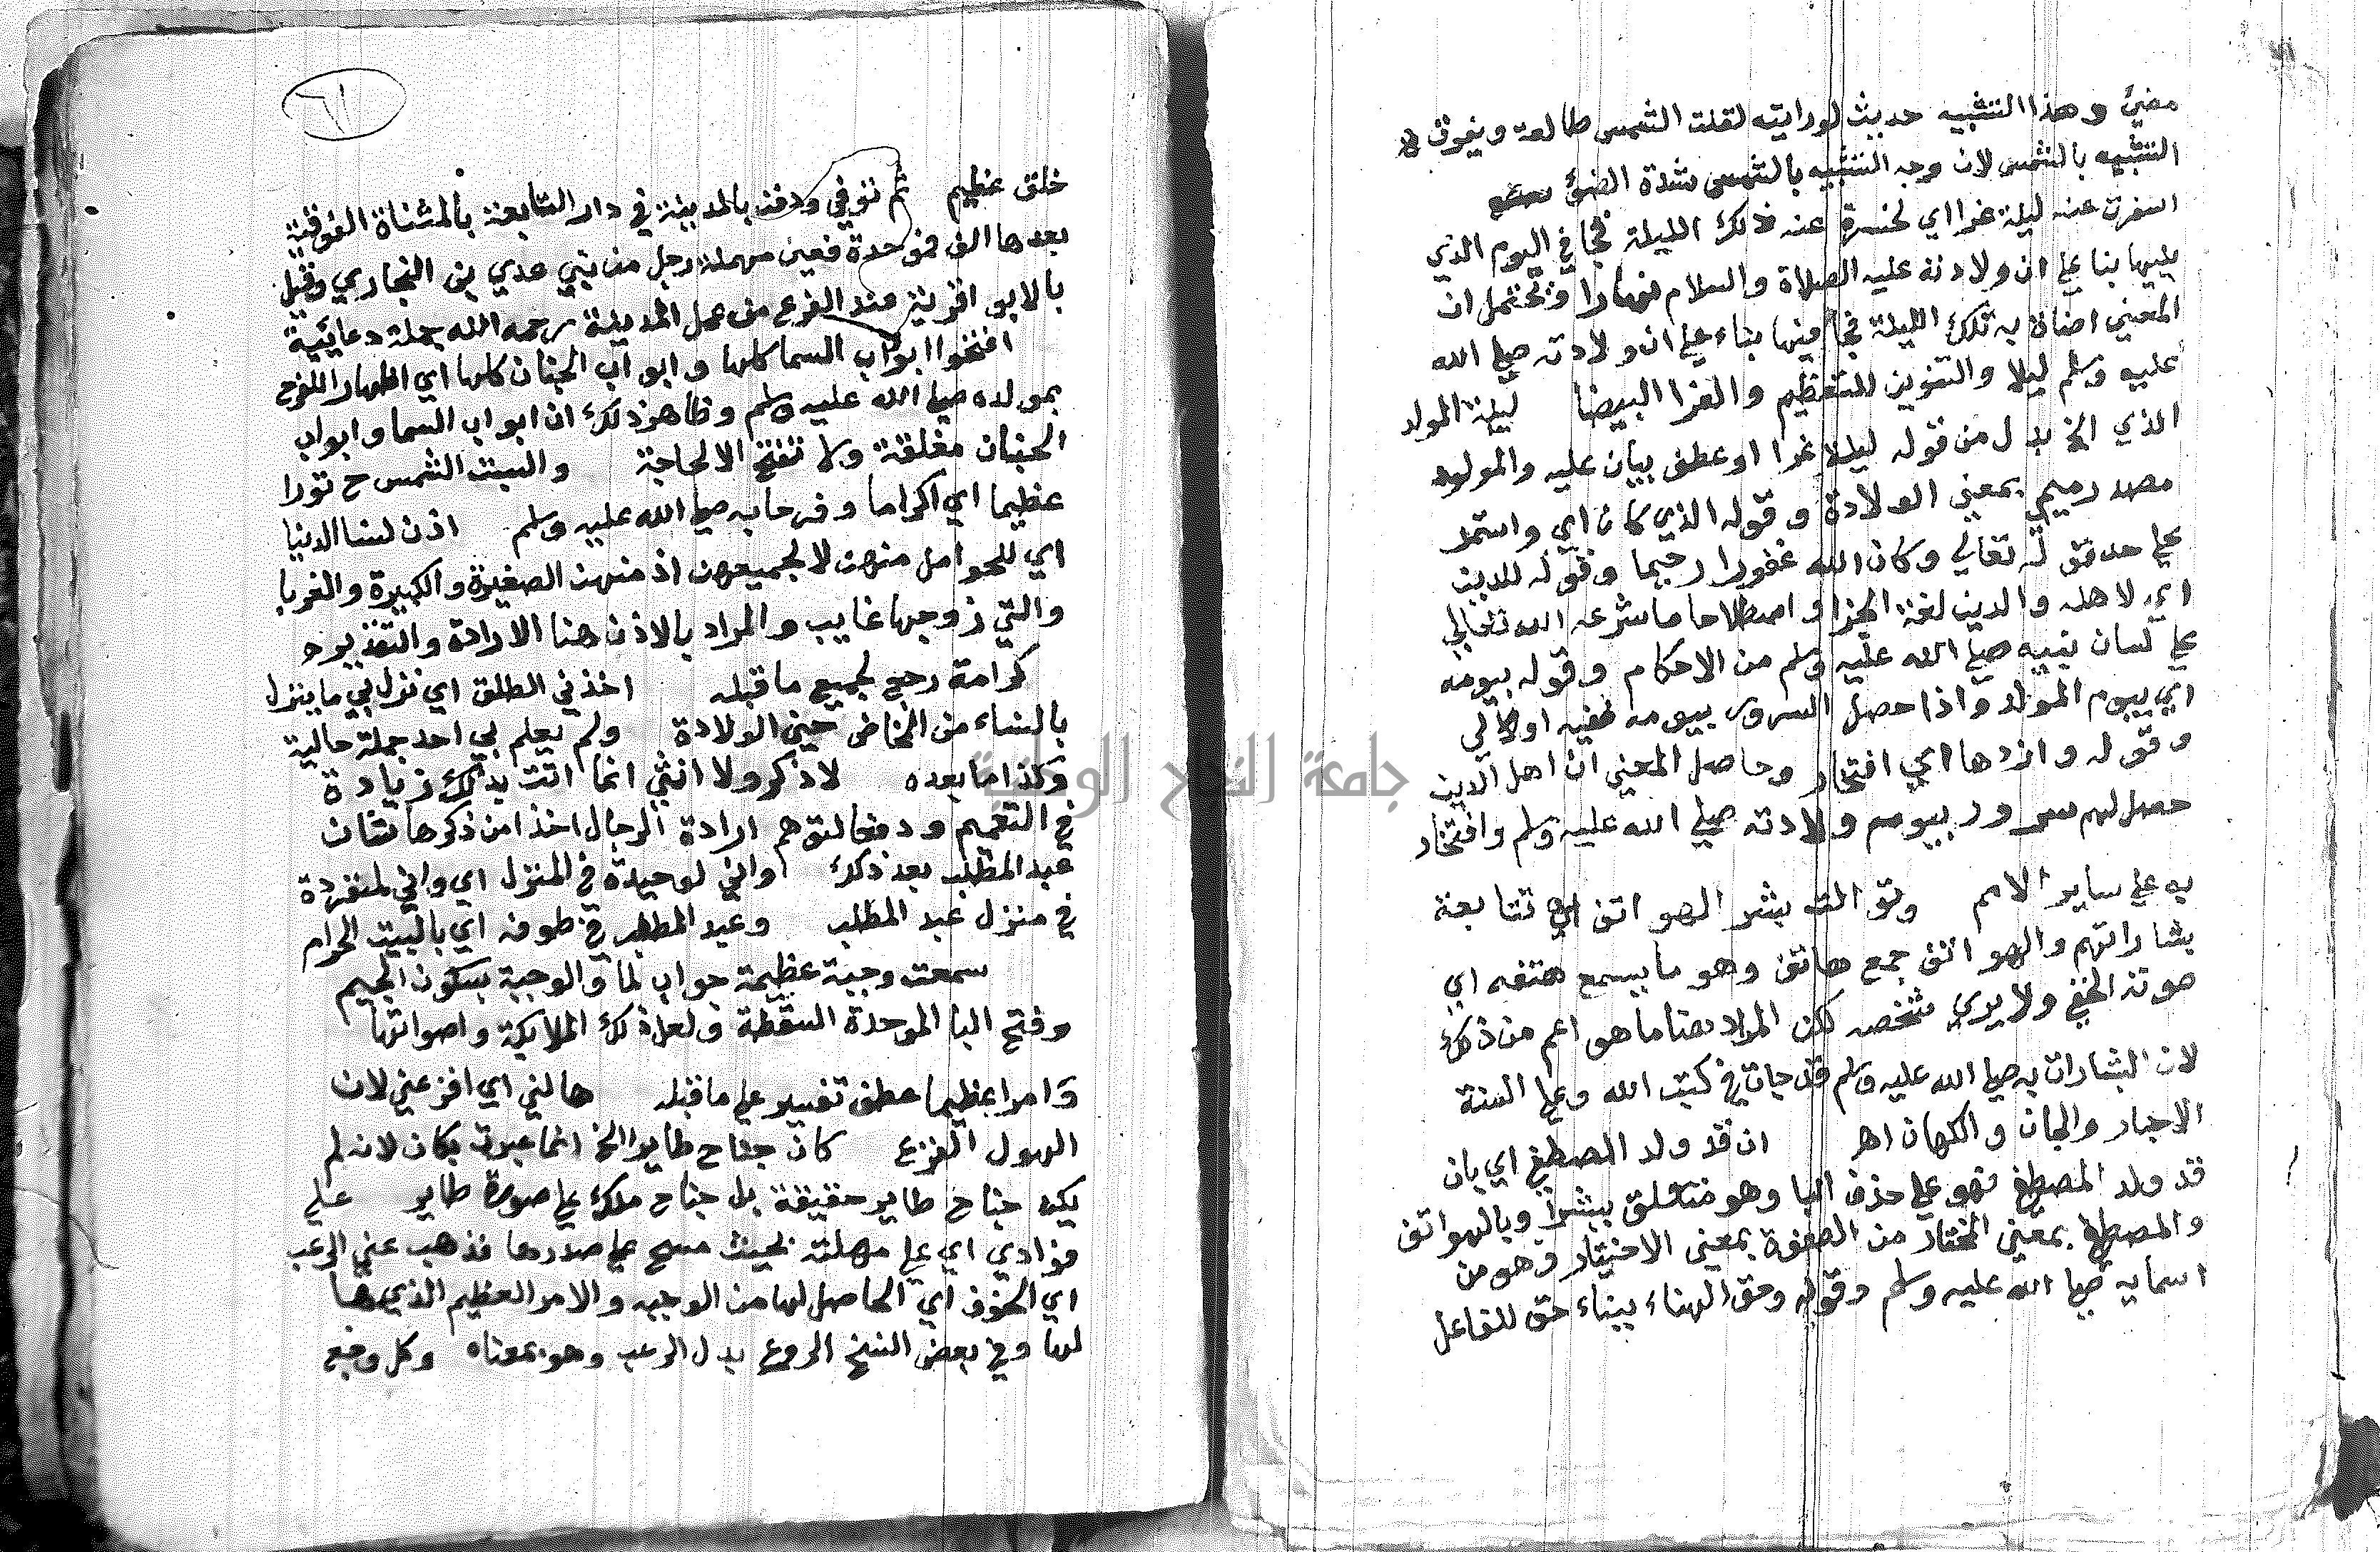 مضيئ وهذا التشبيه حديث لو رايته لقلت الشمس طالعة ويفوق في
التشبيه بالشمس لان وجه التشبيه بالشمس شدة الضوئ
اسفرت عنه ليلة غرا اي لحسرة عنه ذلك الليلة فجا في اليوم الذي
يليها بنا على ان ولادته عليه الصلاة والسلام نهارا ويحتمل ان
المعني اضاة به تلك الليلة فجا فيها بناء على ان ولادته صلى الله
عليه وسلم ليلا والتنوين للتعظيم والغرا البيضا ليلة المولد
الذي الخ بدل من قوله ليلة غرا او عطف بيان عليه والمولد
مصدر ميمي بمعني الولادة وقوله الذي كان اي واستمر
على حد قوله تعالي وكان الله غفورا رحيما وقوله للدين
اي لاهله والدين لغة الجزا واصطلاحا ما شرعه الله تعالي
على لسان نبيه صلى الله عليه وسلم من الاحكام وقوله بيومه
اي بيوم المولد واذا حصل السرور بيومه ففيه اولا لي
وقوله وازدها اي افتخار وحاصل المعني ان اهل الدين
حصل لهم سرور بيوم ولادته صلى الله عليه وسلم وافتخار
به على ساير الامم وتوالت بشر الهواتف اي تتابعت
بشاراتهم والهواتف جمع هاتف وهو ما يسمع هتفه اي
صوته الخفي ولا يري شخصه لكن المراد هنا ما هو اعم من ذلك
لان البشارات به صلى الله عليه وسلم قد جات في كتب الله وعلى السنة
الاحبار والجان والكهان اهـ ان قد ولد المصطفي اي بان
قد ولد المصطفي فهو على حذف البا وهو متعلق ببشر وبالهواتف
والمصطفي بمعني المختار من الصفوة بمعني الاختيار وهو من
اسمايه صلى الله عليه وسلم وقوله وحق الهناء ببناء حق للفاعل
٦١
خلق عظيم ثم توفي ودفن بالمدينة في دار التابعة بالمثناة الفوقية
بعدها الف فموحدة فعين مهملة رجل من بني عدي بن النجاري وقيل
بالابو اقرية عند الفرع من عمل المدينة رحمه الله جملة دعائية
افتحوا ابواب السما كلها وابواب الجنان كلها اي اظهار اللفرح
بمولده صلى الله عليه وسلم وظاهر ذلك ان ابواب السما وابواب
الجنان مغلقة ولا تفتح الا لحاجة والبست الشمس ح نورا
عظيما اي اكراما وفرحا به صلى الله عليه وسلم اذن لنسا الدنيا
اي للحوامل منهن لا لجميعهن اذ منهن الصغيرة والكبيرة والغربا
والتي زوجها غايب والمراد بالاذن هنا الارادة والتقدير
كرامة رجع لجميع ما قبله اخذني الطلق اي نزل بي ما ينزل
بالنساء من المخاض حين الولادة ولم يعلم بي احد جملة حالية
وكذا ما بعده لا ذكر ولا انثي انما اتت بذلك زيادة
في التعميم ودفعا لتوهم ارادة الرجال اخذا من ذكرها شان
عبد المطلب بعد ذلك واني لوحيدة في المنزل اي واني لمنفردة
في منزل عبد المطلب وعبد المطلب في طوفه اي بالبيت الحرام
سمعت وجبة عظيمة جواب لما والوجبة بسكون الجيم
وفتح البا الموحدة السقطة ولعل ذلك الملايكة واصواتها
وامرا عظيما عطف تفسير على ما قبله هالني اي افزعني لان
الهول الفزع كان جناح طاير الخ انما عبرت بكان لانه لم
يكن جناح طاير حقيقة بل جناح ملك على صورة طاير علي
فوادي اي على مهلته بحيث مسح على صدرها فذهب عني الرعب
اي الخوف اي الحاصل لها من الوجبه والامر العظيم الذي هـا
لها وفي بعض النسخ الروع بدل الرعب وهو بمعناه وكل وجع
جامعة النجاح الوطنية